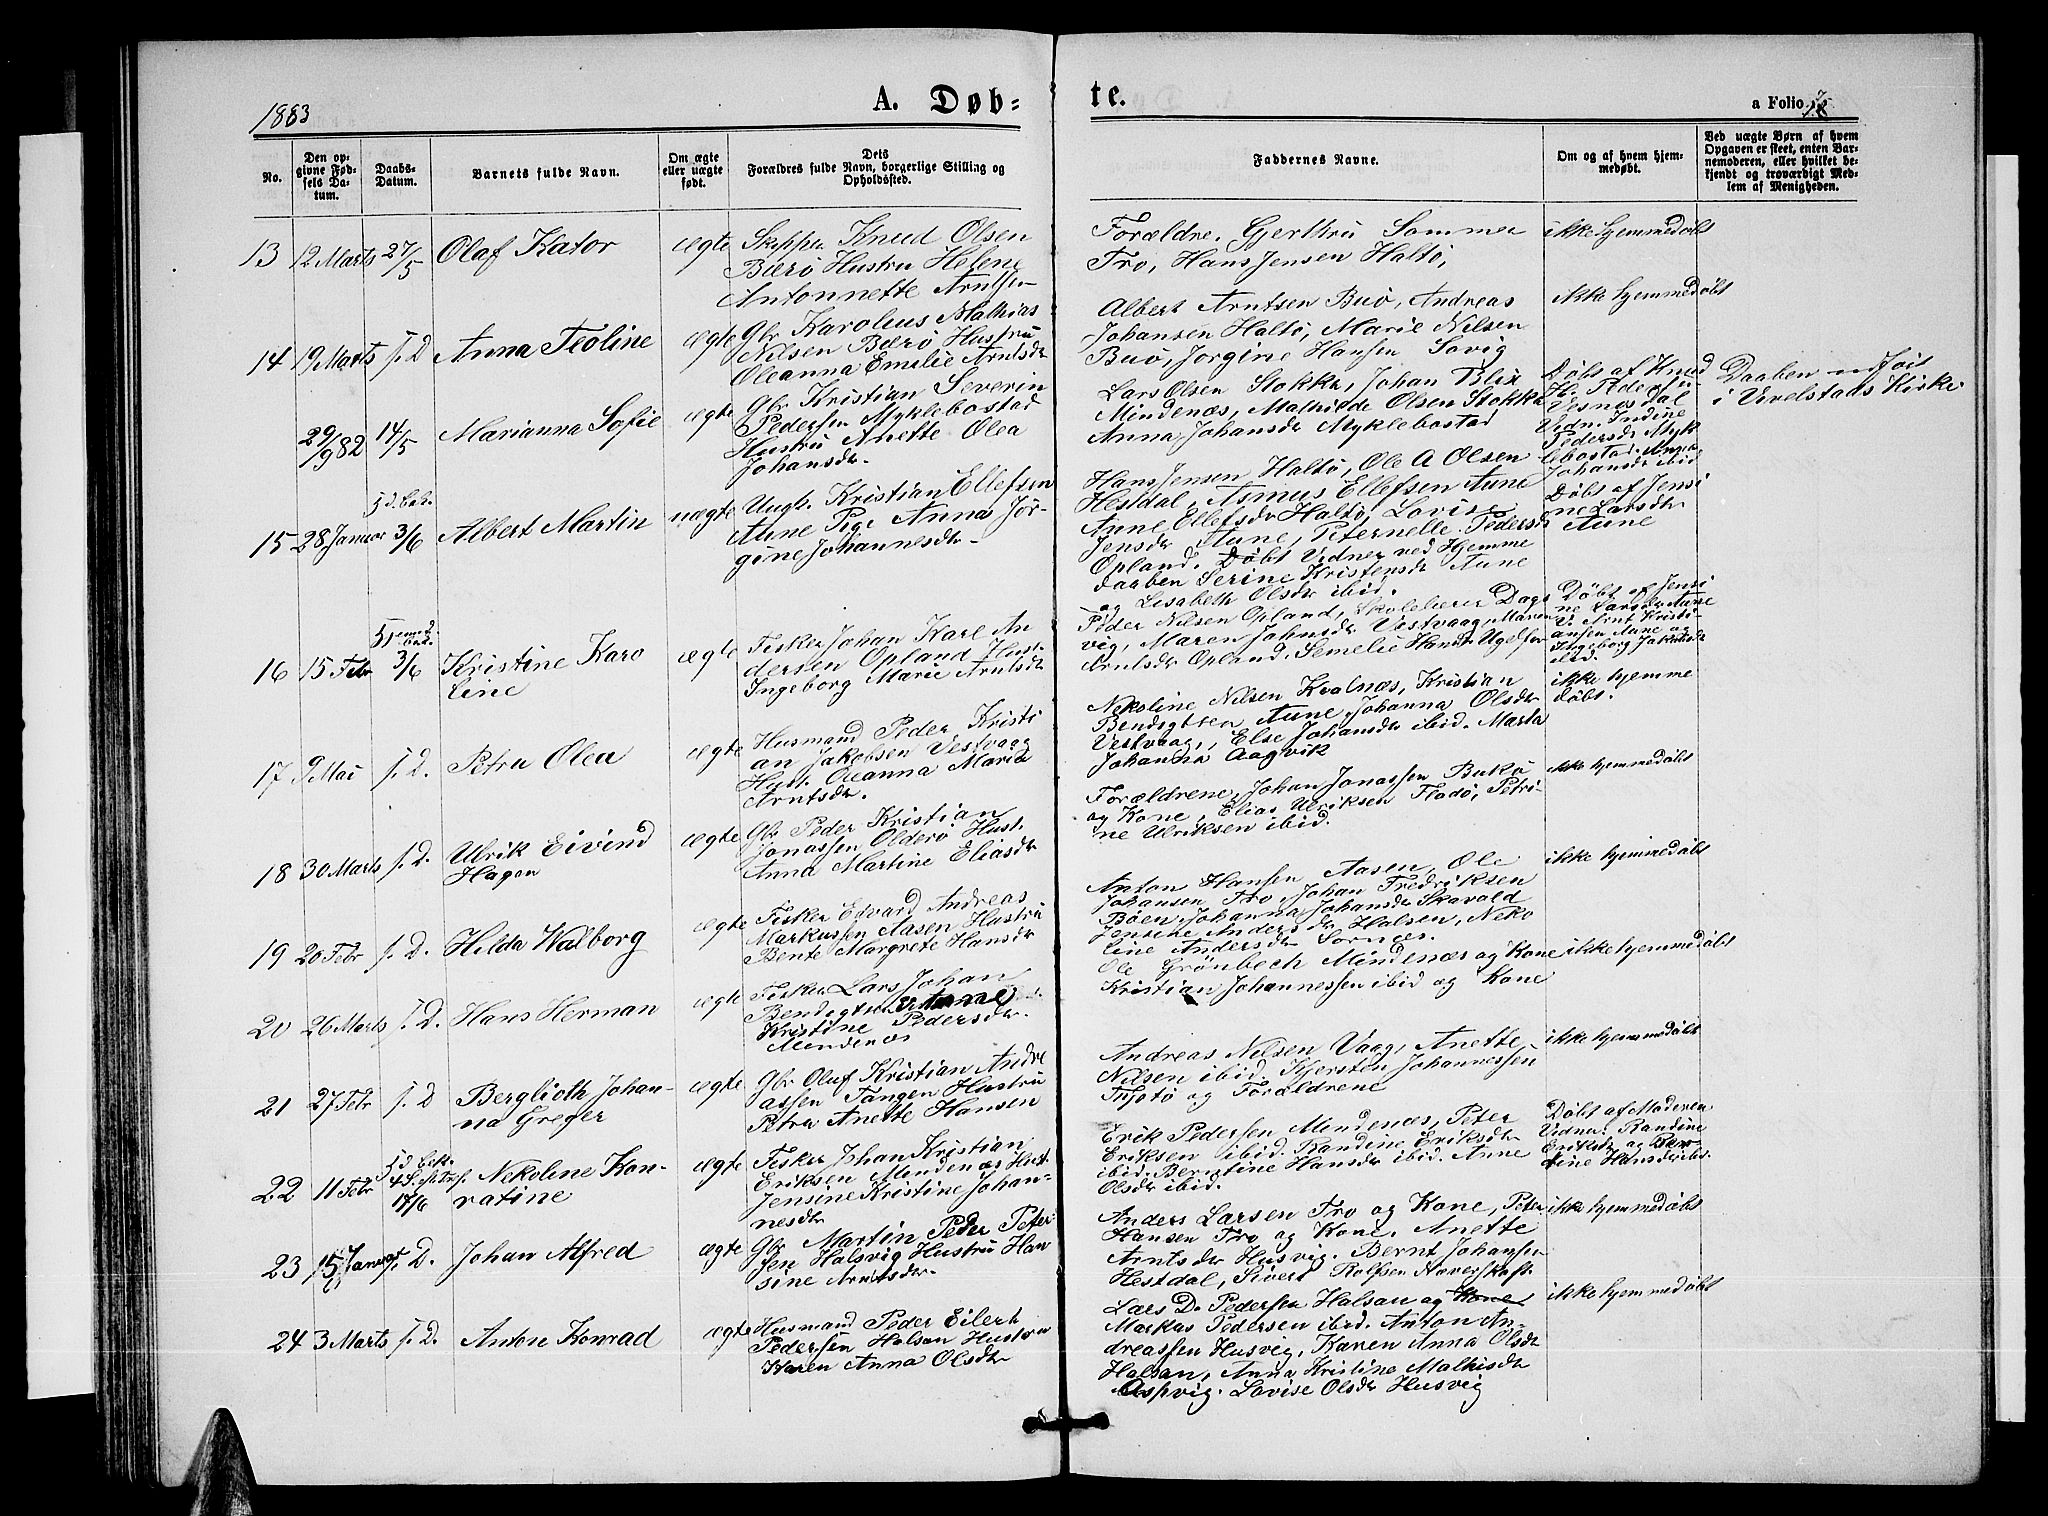 1883
A. Døb=
te.
a Folio
No.
Den op=
givne Fød=
sels Da=
tum.
Daabs=
Datum.
Barnets fulde Navn.
Om ægte
eller uægte
født.
Dets
Forældres fulde Navn, borgerlige Stilling og
Opholdssted.
Faddernes Navne.
Om og af hvem hjem=
medøbt.
Ved uægte Børn af hvem
Opgaven er skeet, enten Bar=
nemoderen, eller hvilket be=
kjendt og troværdigt Med=
lem af Menigheden.
13 12 Marts 27/5 Olaf Kator ægte
Skipper Knud Olsen
Bærö Hustru Helene
Antonnette Arntsen
Forældre. Gjerthru Sommer
Tro, Hans Jensen Haltö,
ikke hjemmedøbt
14 19 Marts s. D Anna Teoline ægte
Gbr Karolius Mathias
Nilsen Bærö Hustru
Oleanna Emilie Arntsdr
Albert Arntsen Buö, Andreas
Johansen Haltö, Marie Nilsen
Buö, Jorgine Hansen Sovig
ikke hjemmedøbt
29/9 82 14/5 Marianna Sofie ægte
Gbr Kristian Severin
Pedersen Myklebostad
Hustru Anette Olea
Johansdr.
Lars Olsen Stokka, Johan Blix
Mindenæs, Mathilde Olsen Stokka
Anna Johansdr Myklebostad
Döbt af Knud
H. Pedersen
Vesnæs Dal
Vidn. Indine
Pedersdr Myk
lebostad. Anna
Johansdr ibid
Daaben udført
i Vevelstads Kirke
15 28 Januar 5 d. bek. 3/6 Albert Martin uægte
Ungk. Kristian Ellefsen
Aune Pige Anna Jör-
gine Johannesdr
Hans Jensen Haltö, Ole A Olsen
Hestdal, Asmus Ellefsen Aune
Anne Ellefsdr Haltö, Lovise
Jensdr Aune, Peternelle Pedersdr
Opland. Døbt Vidner ved Hjemme
daaben Serine Kristensdr Aune
og Lisabeth Olsdr ibid.
Döbt af Jensi
ne Larsdr
Aune
16 15 Febr 3/6 Kristine Karo
line
ægte
Fisker Johan Karl An
dersen Opland Hust.
Ingeborg Marie Arntsdr
Peder Nilsen Opland, Skolelærer Dags
vig, Maren Johnsdr Vestvaag, Maren
Arntsdr Opland. Semelie Hansdr
Döbt af Jensi
ne Larsdr Aune
V. Arnt Kristi
ansen Aune og
Ingeborg Jakobsdr
ibid.
17 9 Mai s. D. Petra Olea ægte
Husmand Peder Kristi
an Jakobsen Vestvaag
Hust. Oleanna Maria
Arntsdr.
Nekoline Nilsen Kvalnæs, Kristian
Bendigtsen Aune, Johanna Olsdr
Vestvaag, Else Johansdr ibid. Marta
Johanna Aagvik
ikke hjemme
døbt.
18 30 Marts s. D. Ulrik Eivind
Hagen
ægte
Gbr Peder Kristian
Jonassen Olderö Hust.
Anna Martine Eliasdr
Forældrene, Johan Jonassen Bukö
og Kone, Elias Ulriksen Flodö, Petri-
ne Ulriksen ibid.
ikke hjemmedøbt
19 20 Febr s. D. Hilda Walborg ægte
Fisker Edvard Andreas
Markussen Aasen Hustru
Bente Margrete Hansdr
Anton Hansen Aasen, Ole
Johansen Tro, Johan Fredriksen
Böen, Johanna Johansdr Skavold
Jensine Andersdr Halsen, Neko
line Andersdr Sornæs.
ikke hjemmedøbt
20 26 Marts s. D. Hans Herman ægte
Fisker Lars Johan
Bendigtsen
Kristine Pedersdr.
Mindenæs
Ole Grönbech Mindenæs og Kone
Kristian Johannessen ibid og Kone
ikke hjemmedøbt
21 27 Febr s. D Berglioth Johan-
na Greger
ægte
Gbr Oluf Kristian Andre
assen Tangen Hustru
Petra Anette Hansen
Andreas Nilsen Vaag, Anette
Nilsen ibid. Kjersten Johannessen
Tjötö og Forældrene
ikke hjemmedøbt
22 11 Febr 17/6 Nekoline Kon-
ratine
ægte
Fisker Johan Kristian
Eriksen Mindenæs Hust.
Jensine Kristine Johan-
nesdr
Erik Pedersen Mindenæs, Peter
Eriksen ibid. Randine Eriksdr
ibid. Berntine Hansdr ibid. Anne
Olsdr ibid.
Döbt af Moderen
Vidner Randine
Eriksdr og Bern
tine Hansdr ibid.
23 15 Januar s. D. Johan Alfred ægte
Gbr Martin Peder Peter-
sen Halsvig Hustru Han
sine Arntsdr.
Anders Larsen Tro og Kone, Peter
Hansen Tro og Kone. Anette
Arntsdr Husvig. Bernt Johansen
Hestdal, Sivert Rolfsen Næverskaft.
ikke hjemmedøbt
24 3 Marts s. D. Anton Konrad ægte
Husmand Peder Eilert
Pedersen Halsan Hustru
Karen Anna Olsdr
Lars D. Pedersen Halsan og Kone
Markus Pedersen ibid. Anton An-
dreassen Husvig, Karen Anna Olsdr
Halsan, Anna Kristine Mathisdr
Aspvig. Lovise Olsdr Husvig
ikke hjemmedøbt